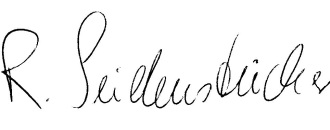 R. Seidenstücker